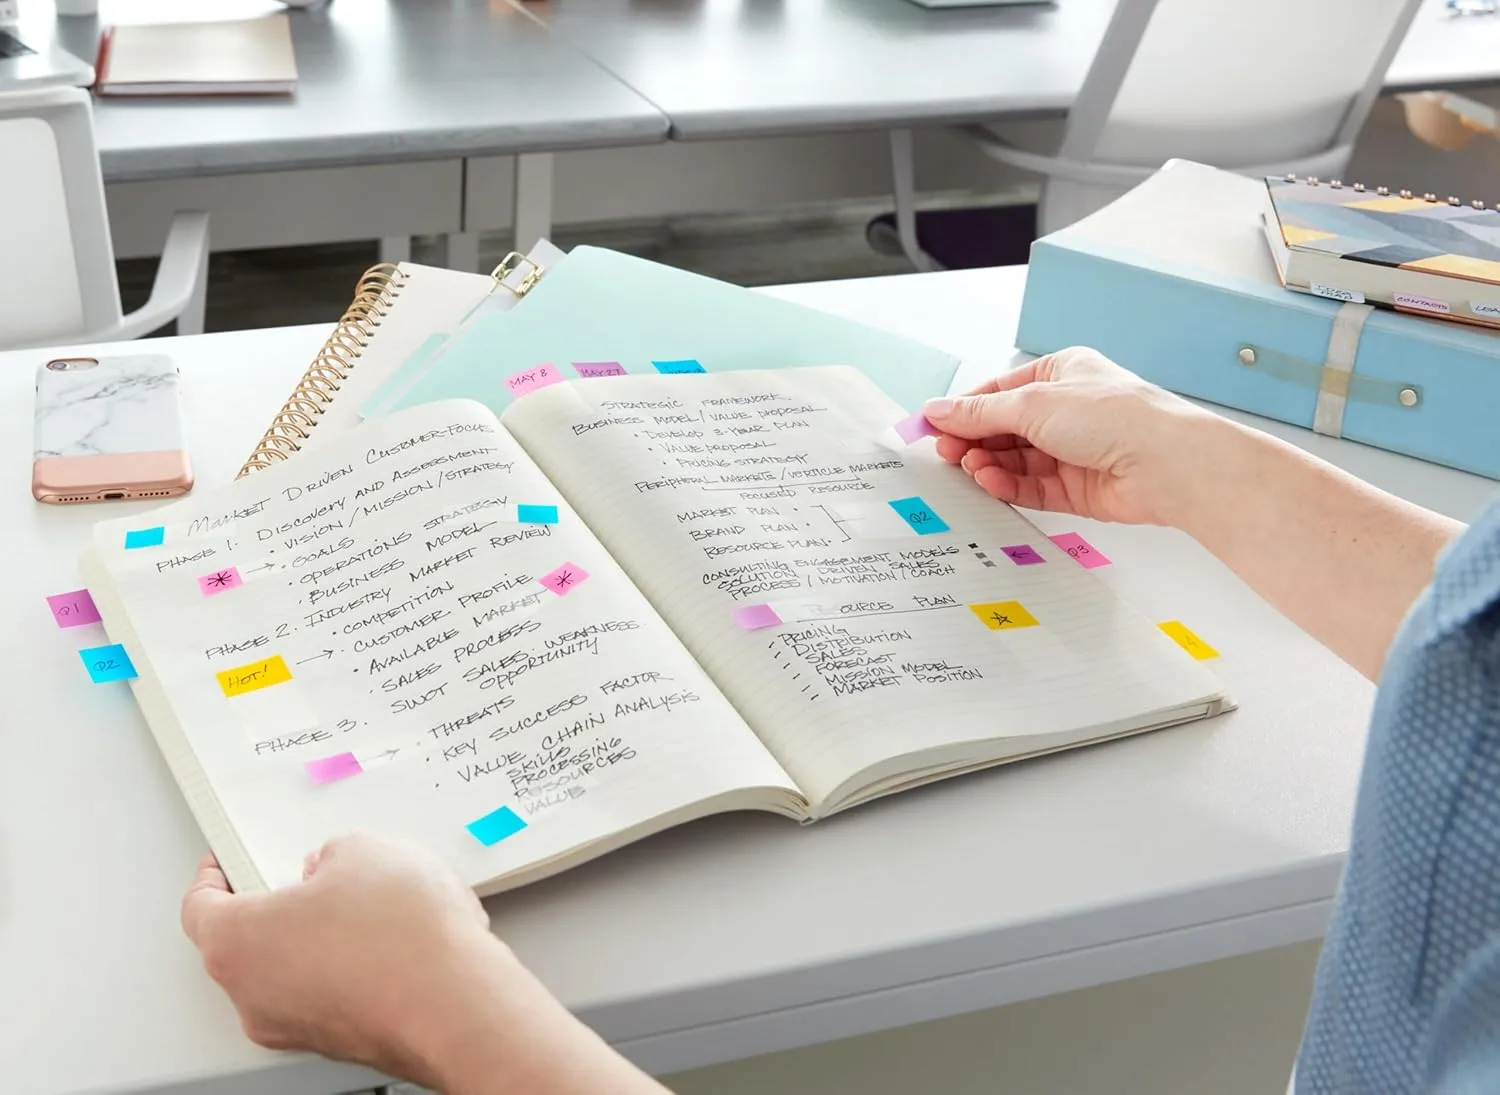 MAY 8
MAY 27
MARKET DRIVEN CUSTOMER-FOCUS
PHASE 1: DISCOVERY AND ASSESSMENT
• VISION / MISSION / STRATEGY
* → • GOALS
• OPERATIONS STRATEGY
• BUSINESS MODEL
PHASE 2. INDUSTRY MARKET REVIEW
• COMPETITION *
HOT! → • CUSTOMER PROFILE
• AVAILABLE MARKET
• SALES PROCESS
• SWOT SALES: WEAKNESS
OPPORTUNITY
PHASE 3. • THREATS
→ • KEY SUCCESS FACTOR
• VALUE CHAIN ANALYSIS
SKILLS
PROCESSING
RESOURCES
VALUE
Q1
Q2
STRATEGIC FRAMEWORK
BUSINESS MODEL / VALUE PROPOSAL
• DEVELOP 3-YEAR PLAN
• VALUE PROPOSAL
• PRICING STRATEGY
PERIPHERAL MARKETS / VERTICLE MARKETS
FOCUSED RESOURCE
MARKET PLAN •
BRAND PLAN •
RESOURCE PLAN •
Q2
CONSULTING ENGAGEMENT MODELS
SOLUTION DRIVEN SALES
PROCESS / MOTIVATION / COACH
←
Q3
RESOURCE PLAN
- PRICING
- DISTRIBUTION
- SALES
- FORECAST
- MISSION MODEL
- MARKET POSITION
4
IDEA
MAP
CONTACTS